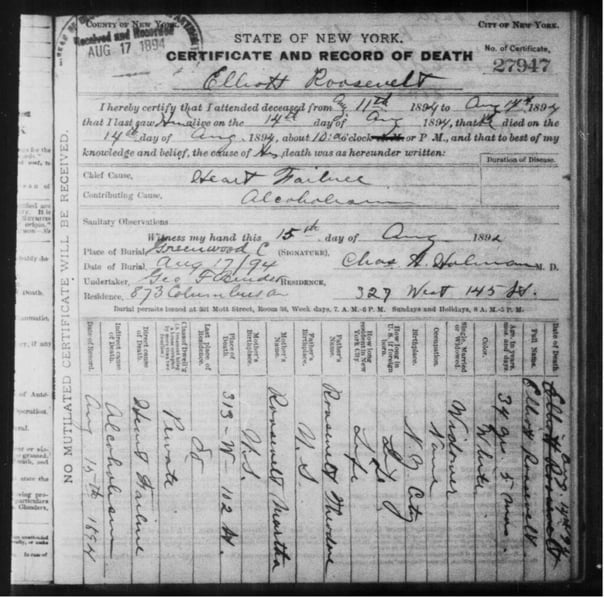 COUNTY OF NEW YORK.
CITY OF NEW YORK.
Received and Recorded
AUG 17 1894
STATE OF NEW YORK.
CERTIFICATE AND RECORD OF DEATH
No. of Certificate,
27947
Elliott Roosevelt
I hereby certify that I attended deceased from Aug 11th 1894 to Aug 14th 1894
that I last saw him alive on the 14th day of Aug 1894, that he died on the
14th day of Aug. 1894, about 10 o'clock A.M. or P M., and that to best of my
knowledge and belief, the cause of his death was as hereunder written:
Duration of Disease.
Chief Cause, Heart Failure
Contributing Cause, Alcoholism
Sanitary Observations
Witness my hand this 15th day of Aug 189
Place of Burial, Greenwood C (SIGNATURE), Chas. H. M. D.
Date of Burial, Aug 17/94
Undertaker, Geo F RESIDENCE, 327 West 145 St.
Residence, 873 Columbus av
Burial permits issued at 301 Mott Street, Room 36, Week days, 7 A. M.-6 P.M. Sundays and Holidays, 8 A.M.-5 P.M.
NO MUTILATED CERTIFICATE WILL BE RECEIVED.
Date of Death. Aug. 14th 94
Elliott Roosevelt
Full Name. Elliott Roosevelt
Age, in years, mos. and days. 34 yrs. 5 mos.
Color. White
Single, Married or Widowed. Widower
Occupation. None
Birthplace. N Y City
How long in U S if foreign born. Life
How long resident in New York City Life
Father's Name. Roosevelt Theodore
Father's Birthplace. U S
Mother's Name. Roosevelt Martha
Mother's Birthplace. U.S.
Place of Death 313 W 102 St.
Last place of Residence. do
Class of Dwell'g Private
Direct cause of Death. Heart Failure
Indirect cause of Death. Alcoholism
Date of Record. Aug 15th 1894